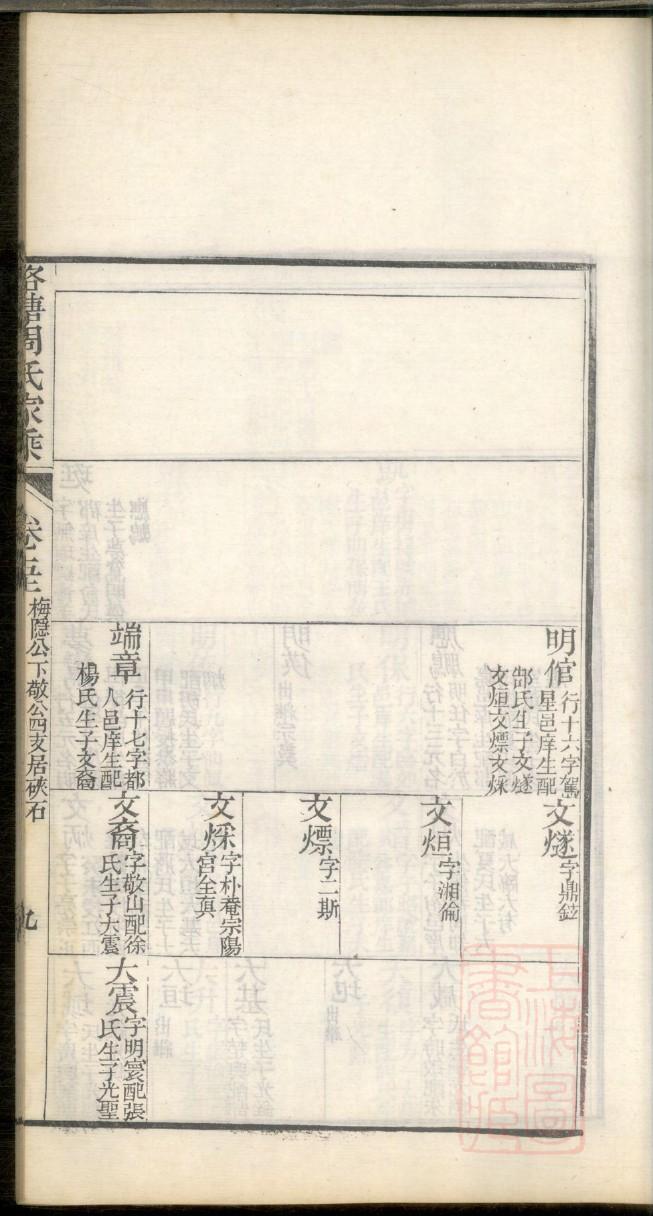 明倌
行十六字駕
星邑庠生配
郜氏生子文燧
文烜文㷼文婇
文燧
字鼎鉉
文烜
字湘倫
文㷼
字二斯
文婇
字朴菴宗陽
宮全真
端章
行十七字都
人邑庠生配
楊氏生子文裔
文裔
字敬山配徐
氏生子大震
大震
字明寰配張
氏生子光聖
周氏家乘
卷三
梅隱公下敬公四支居硤石
九
上海圖書館藏